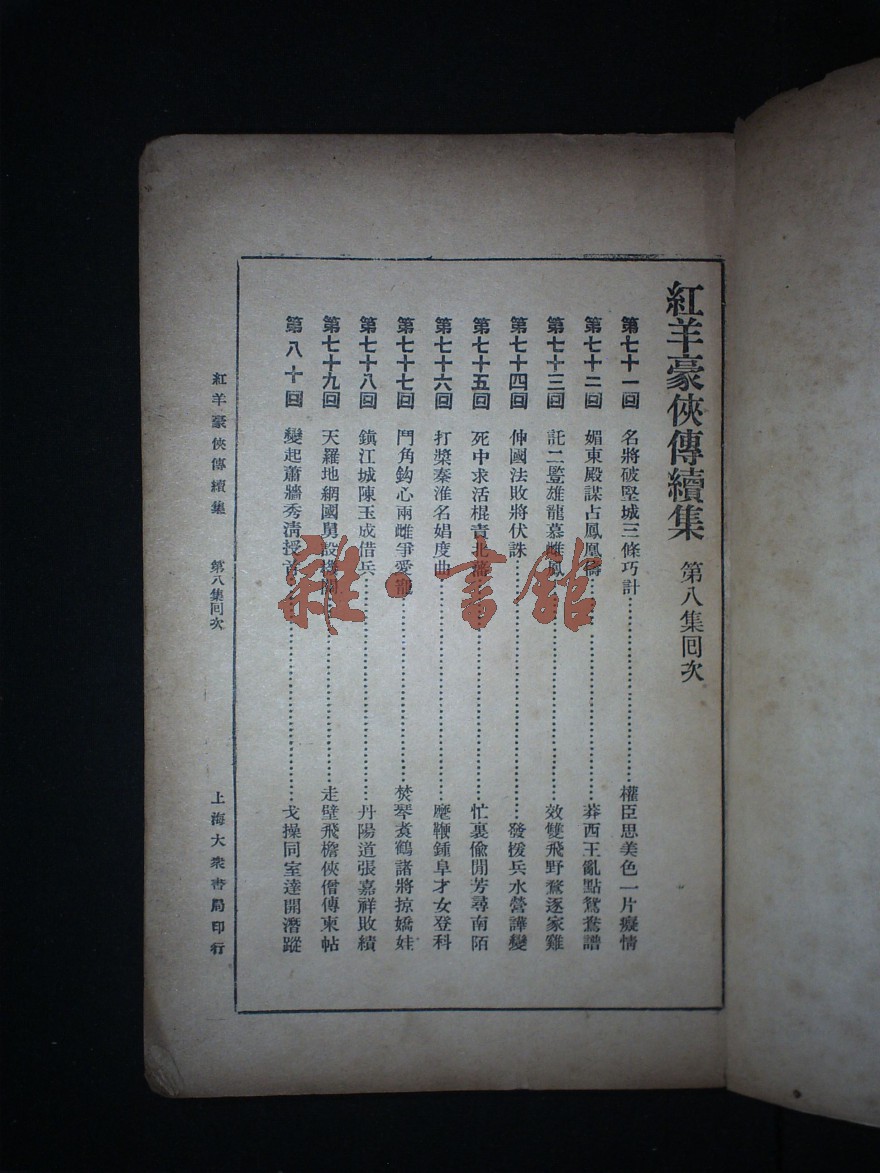 紅羊豪俠傳續集 第八集囘次
第七十一回 名將破堅城三條巧計……權臣思美色一片癡情
第七十二回 媚東殿謀占鳳凰儔……莽西王亂點鴛鴦譜
第七十三回 託二豎雄龍慕雌鳳……效雙飛野鶩逐家雞
第七十四回 伸國法敗將伏誅……發援兵水營譁變
第七十五回 死中求活棍責北藩……忙裏偸閒芳尋南陌
第七十六回 打槳秦淮名娼度曲……麾鞭鍾阜才女登科
第七十七回 鬥角鈎心兩雌爭愛寵……焚琴煑鶴諸將掠嬌娃
第七十八回 鎭江城陳玉成借兵……丹陽道張嘉祥敗績
第七十九回 天羅地網國舅設機關……走壁飛檐俠僧傳柬帖
第八十回 變起蕭牆秀淸授首……戈操同室達開潛蹤
紅羊豪俠傳續集 第八集囘次 上海大衆書局印行
雜·書館